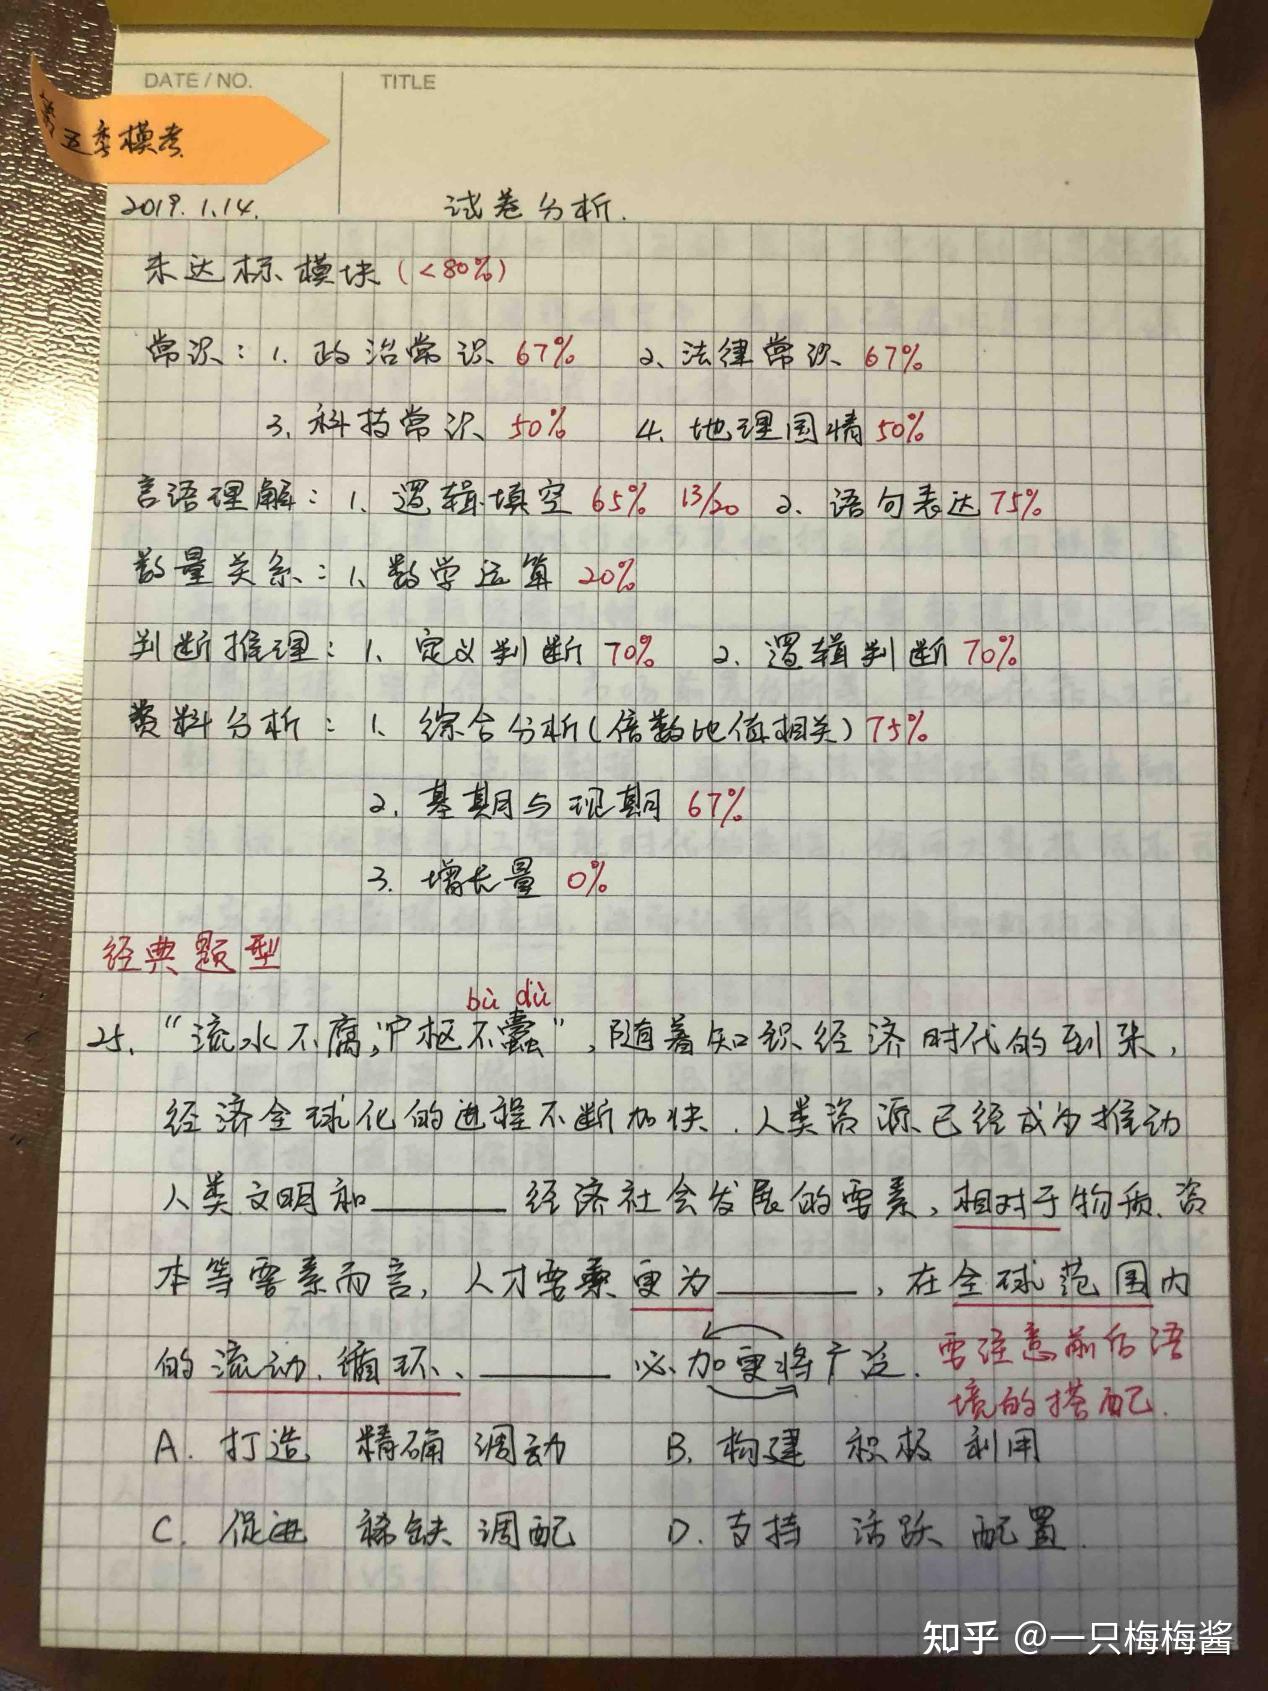 DATE / NO.
TITLE
第五季模考
2019.1.14.
试卷分析.
未达标模块(<80%)
常识：1. 政治常识 67% 2、法律常识 67%
3. 科技常识 50% 4. 地理国情 50%
言语理解：1、逻辑填空 65% 13/20 2、语句表达 75%
数量关系：1、数学运算 20%
判断推理：1、定义判断 70% 2. 逻辑判断 70%
资料分析：1、综合分析(倍数比值相关) 75%
2. 基期与现期 67%
3. 增长量 0%
经典题型
bù dù
25. “流水不腐，户枢不蠹”，随着知识经济时代的到来，
经济全球化的进程不断加快．人类资源已经成为推动
人类文明和______经济社会发展的要素，相对于物质、资
本等要素而言，人才要素更为______，在全球范围内
的流动、循环、______必加更将广泛．
需注意前后语
境的搭配．
A. 打造 精确 调动 B. 构建 积极 利用
C. 促进 稀缺 调配 D. 支持 活跃 配置．
知乎 @一只梅梅酱